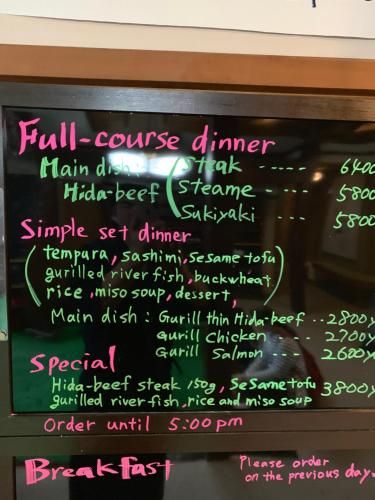 Full-course dinner
Main dish: ( Steak ----- 6400
Hida-beef Steame - --- 5800
Sukiyaki --- 5800
Simple set dinner
(tempura, sashimi, sesame tofu
gurilled river fish, buckwheat
rice, miso soup, dessert, )
Main dish : Gurill thin Hida-beef -- 2800y
Gurill Chicken --- 2700y
Gurill Salmon --- 2600y
Special
Hida-beef steak 150g, Sesame tofu 3800y
gurilled river fish, rice and miso soup
Order until 5:00pm
Breakfast
Please order
on the previous day.